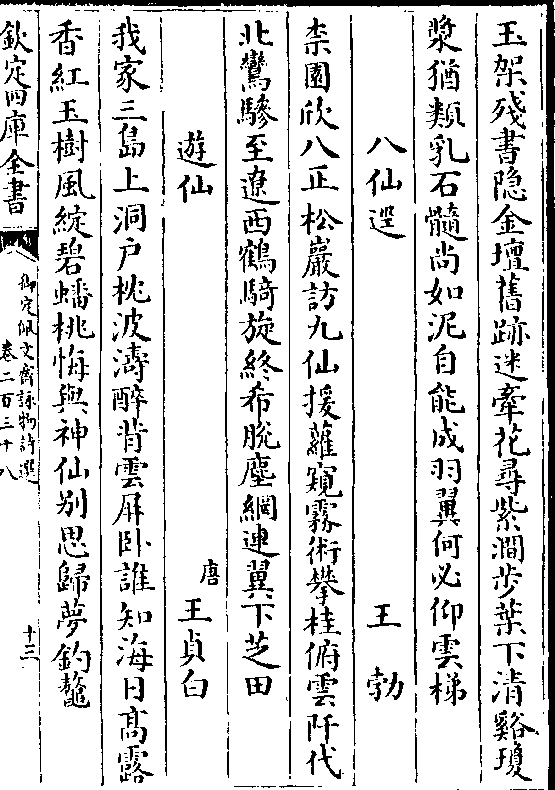 玉架殘書隐金壇舊跡迷牽花尋紫澗步葉下清谿瓊
漿猶類乳石髓尚如泥自能成羽翼何必仰雲梯
八仙逕 王勃
柰園欣八正松巖訪九仙援蘿窺霧術攀桂俯雲阡代
北鸞驂至遼西鶴騎旋終希脫塵網連翼下芝田
遊仙 唐王貞白
我家三島上洞户枕波濤醉背雲屏卧誰知海日髙露
香紅玉樹風綻碧蟠桃悔與神仙别思歸夢釣鼇
欽定四庫全書 御定佩文齋詠物詩選 卷二百三十八 十三